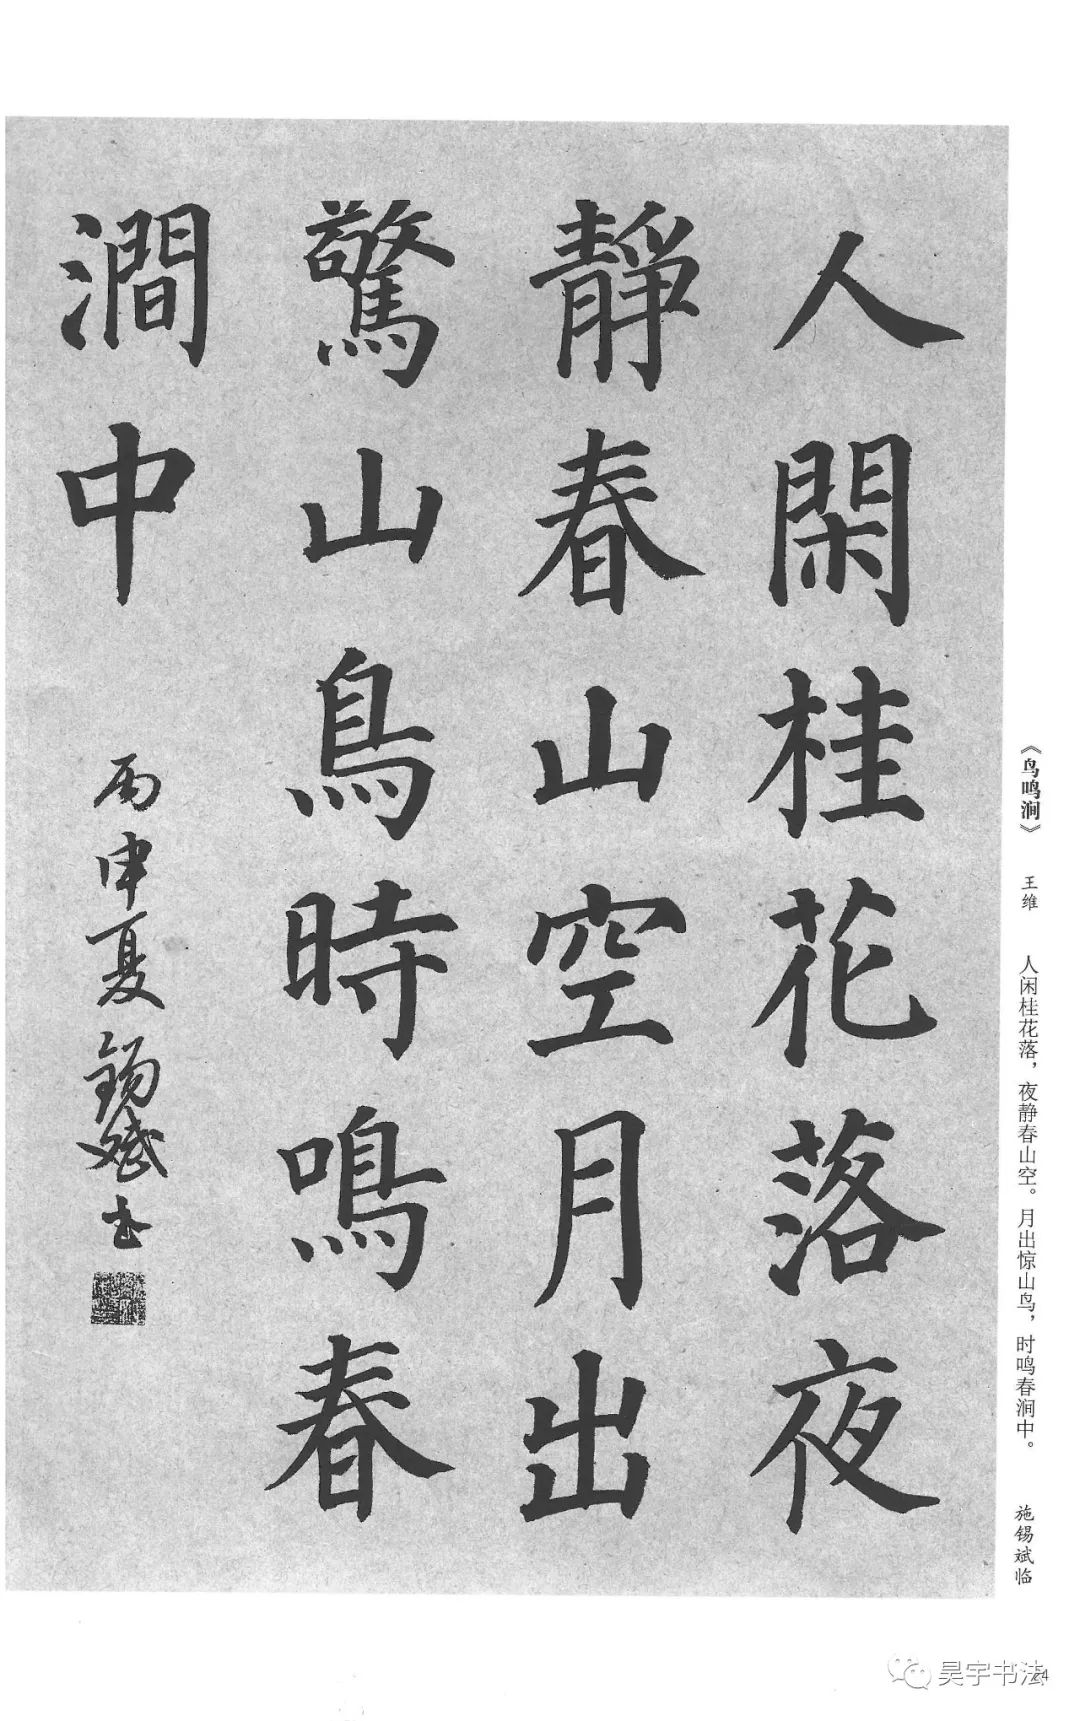 人閑桂花落夜
靜春山空月出
驚山鳥時鳴春
澗中
丙申夏錫斌书
《鸟鸣涧》 王维 人闲桂花落，夜静春山空。月出惊山鸟，时鸣春涧中。 施锡斌临
昊宇书法
24